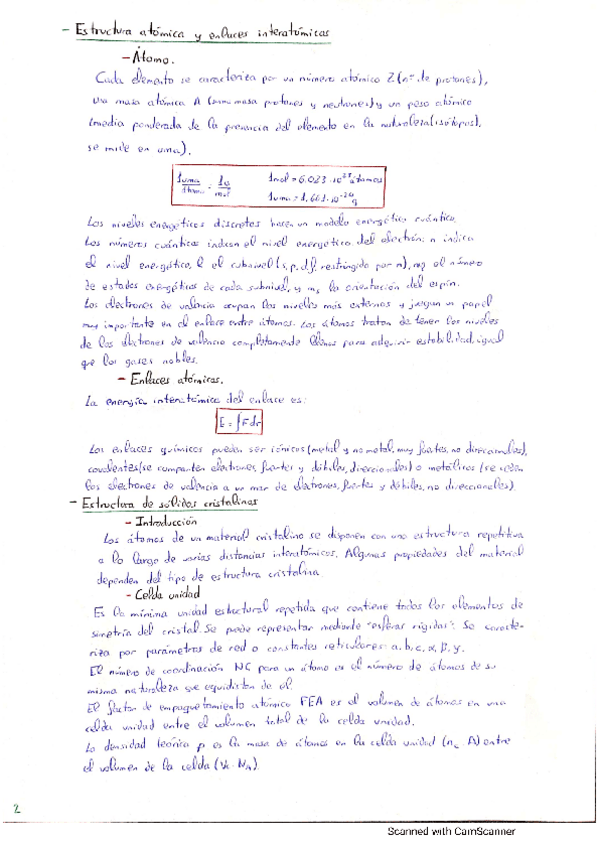 - Estructura atómica y enlaces interatómicos
- Átomo.
Cada elemento se caracteriza por un número atómico Z (nº de protones),
una masa atómica A (suma masa protones y neutrones) y un peso atómico
(media ponderada de la presencia del elemento en la naturaleza (isótopos),
se mide en uma).
1uma/átomo = 1g/mol 1mol = 6.023 · 10²³ átomos
1uma = 1,661 · 10⁻²⁴ g
Los niveles energéticos discretos hacen un modelo energético cuántico.
Los números cuánticos indican el nivel energético del electrón: n indica
el nivel energético, l el subnivel (s, p, d, f, restringido por n), ml el número
de estados energéticos de cada subnivel, y ms la orientación del espín.
Los electrones de valencia ocupan los niveles más externos y juegan un papel
muy importante en el enlace entre átomos. Los átomos tratan de tener los niveles
de los electrones de valencia completamente llenos para adquirir estabilidad, igual
que los gases nobles.
- Enlaces atómicos.
La energía interatómica del enlace es:
E = ∫F dr
Los enlaces químicos pueden ser iónicos (metal y no metal, muy fuertes, no direccionales),
covalentes (se comparten electrones, fuertes y débiles, direccionales) o metálicos (se ceden
los electrones de valencia a un mar de electrones, fuertes y débiles, no direccionales).
- Estructura de sólidos cristalinos
- Introducción
Los átomos de un material cristalino se disponen con una estructura repetitiva
a lo largo de varias distancias interatómicas. Algunas propiedades del material
dependen del tipo de estructura cristalina.
- Celda unidad
Es la mínima unidad estructural repetida que contiene todos los elementos de
simetría del cristal. Se puede representar mediante "esferas rígidas". Se caracte-
riza por parámetros de red o constantes reticulares: a, b, c, α, β, γ.
El número de coordinación NC para un átomo es el número de átomos de su
misma naturaleza que equidistan de él.
El factor de empaquetamiento atómico FEA es el volumen de átomos en una
celda unidad entre el volumen total de la celda unidad.
La densidad teórica ρ es la masa de átomos en la celda unidad (nc A) entre
el volumen de la celda (Vc · NA).
2
Scanned with CamScanner